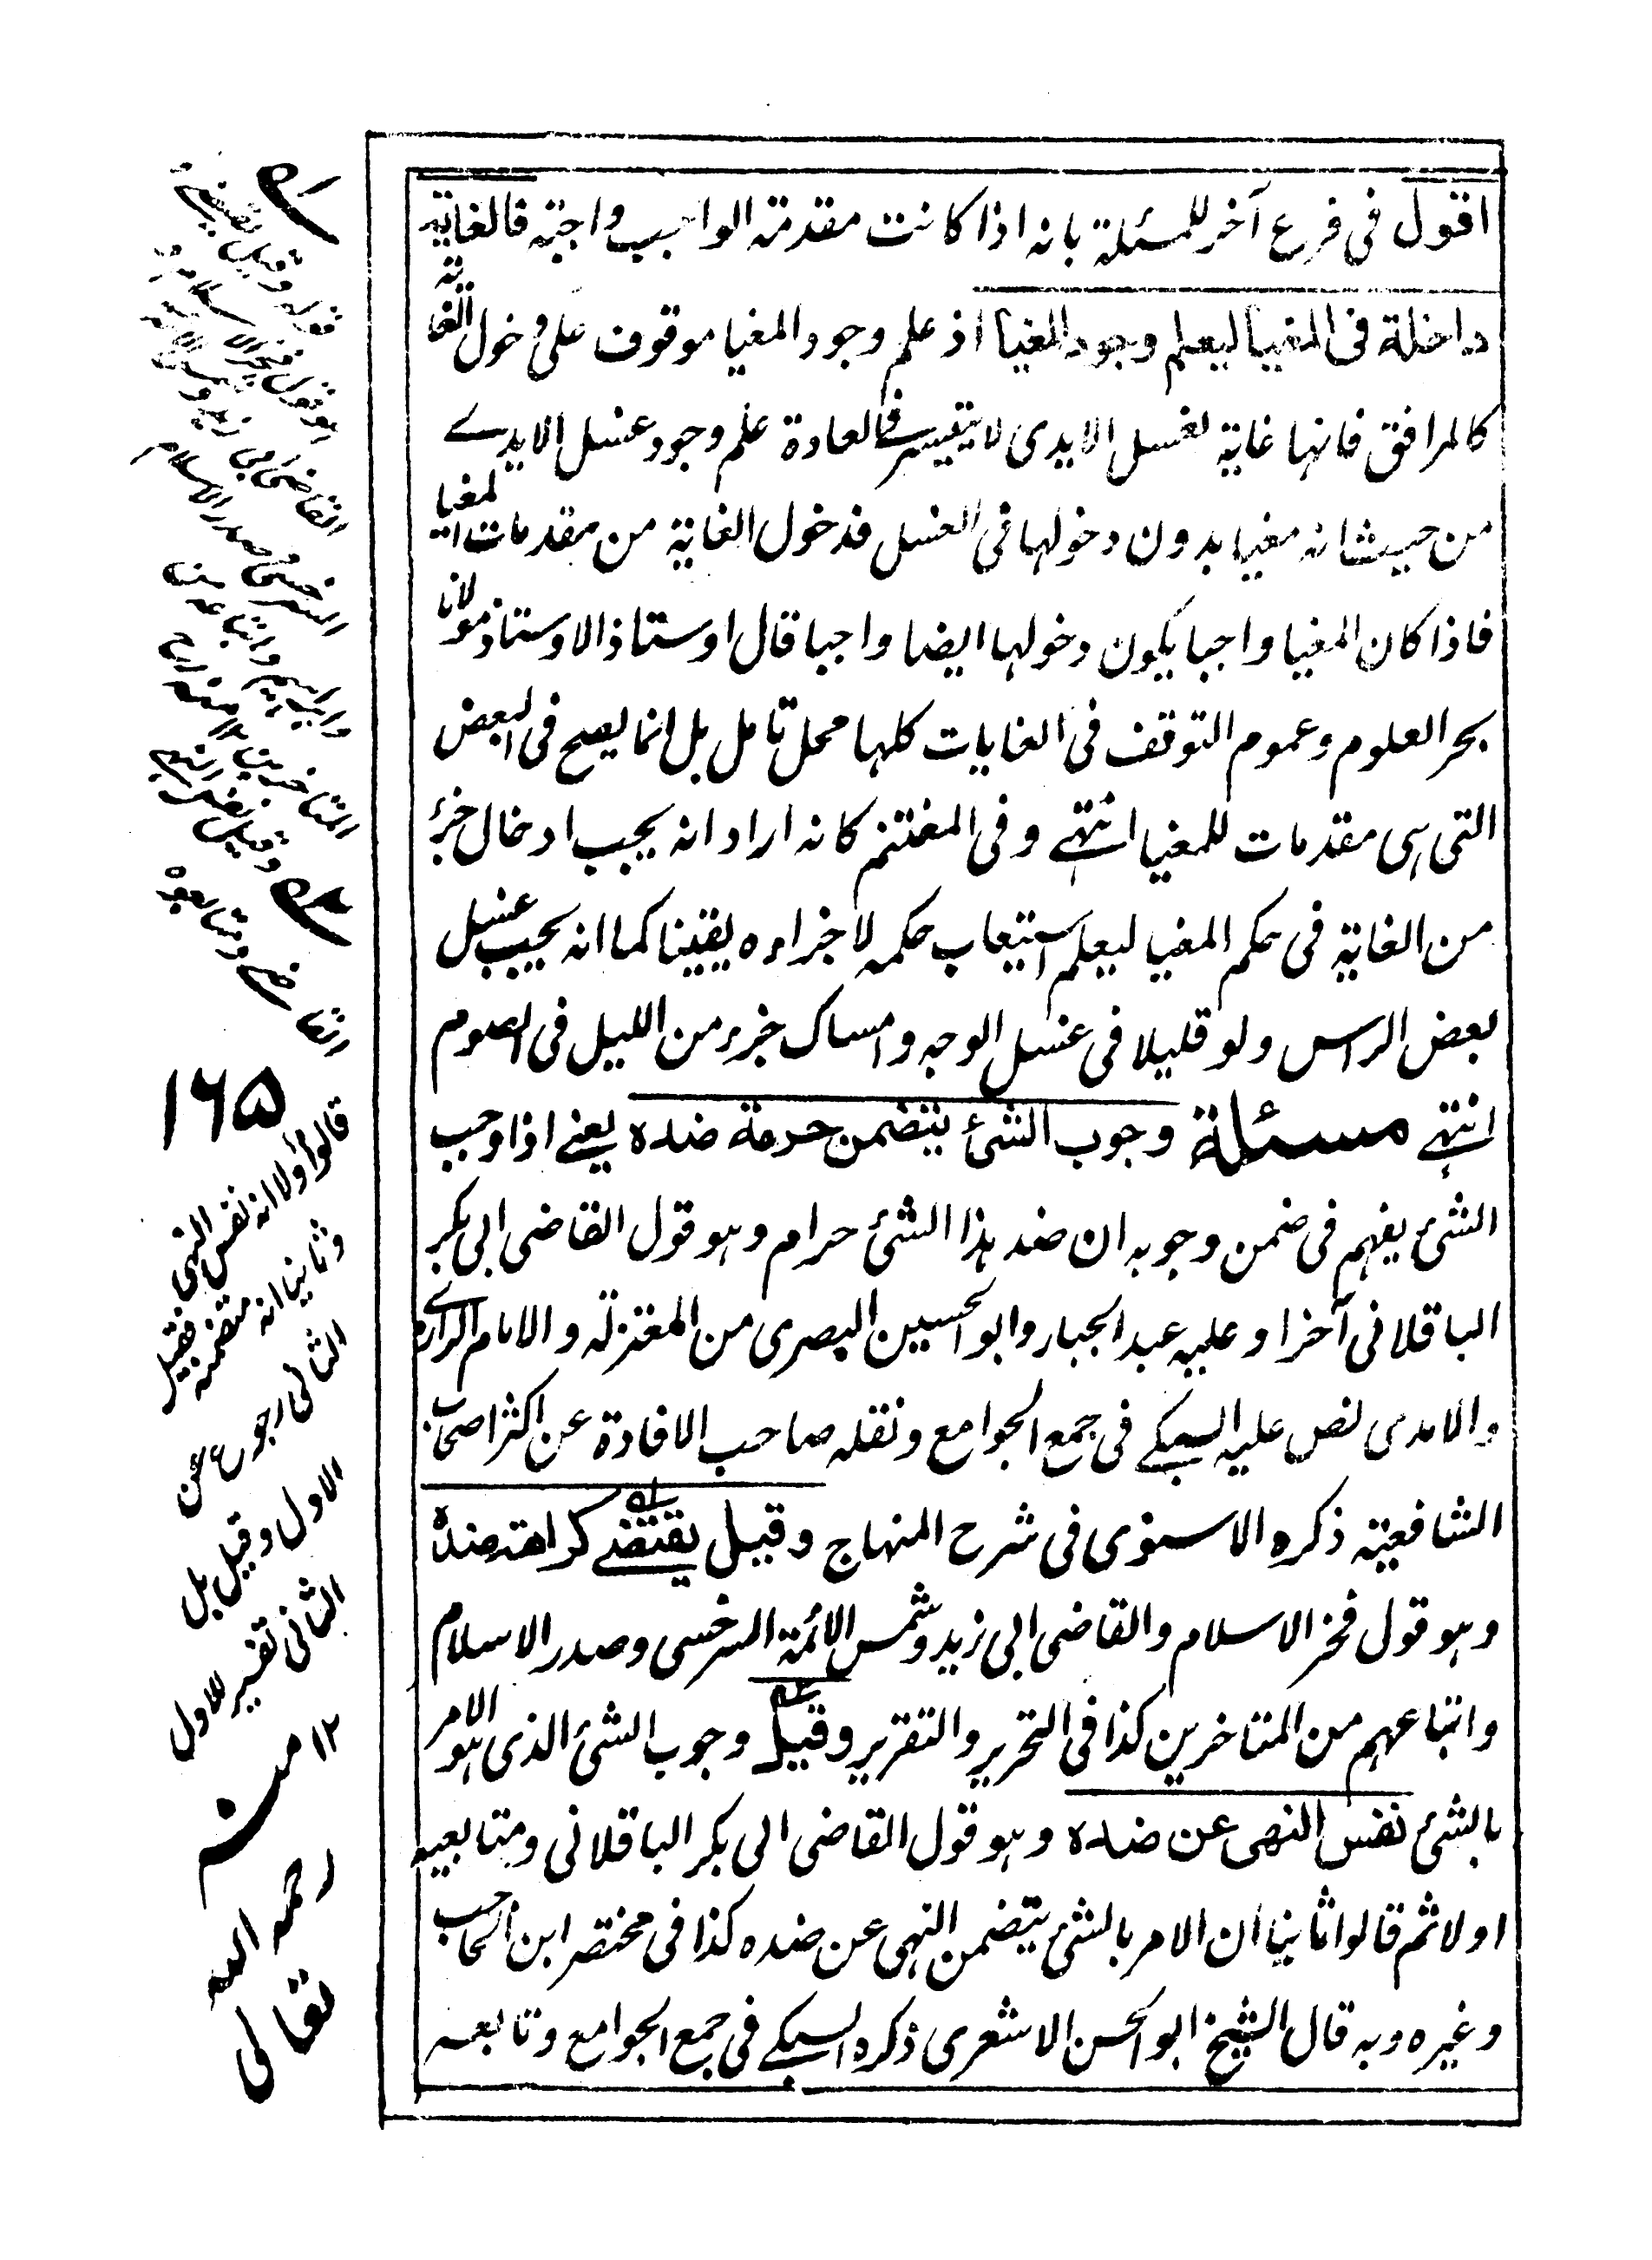 اقول فى فرع آخر للمسئلة بانه اذا كانت مقدمة الواجب واجبة فالغاية
داخلة فى المغيا ليعلم وجود المغيا اذ علم وجود المغيا موقوف على دخول الغاية
كالمرافق فانها غاية لغسل الايدى لا يتيسر فى العادة علم وجود غسل الايدے
من حيث انه مغيا بدون دخولها فى الغسل فدخول الغاية من مقدمات المغيا
فاذا كان المغيا واجبا يكون دخولها ايضا واجبا قال اوستاذ الاوستاذ مولانا
بحر العلوم وعموم التوقف فى الغايات كلها محل تامل بل انما يصح فى البعض
التى هى مقدمات للمغيا انتهے وفى المغتنم كانه اراد انه يجب ادخال جزء
من الغاية فى حكم المغيا ليعلم استيعاب حكمه لاجزاءه يقينا كما انه يجب غسل
بعض الراس ولو قليلا فى غسل الوجه وامساك جزء من الليل فى الصوم
انتهے مسئلة وجوب الشئ يتضمن حرمة ضده يعنے اذا وجب
الشئ يفهم فى ضمن وجوبه ان ضد هذا الشئ حرام وهو قول القاضى ابى بكر
الباقلانى آخرا وعليه عبد الجبار وابو الحسين البصرى من المعتزلة والامام الرازے
والامدى نص عليه السبكے فى جمع الجوامع ونقله صاحب الافادة عن اكثر اصحاب
الشافعية ذكره الاسنوى فى شرح المنهاج وقيل يقتضے كراهة ضده
وهو قول فخر الاسلام والقاضى ابى زيد وشمس الائمة السرخسى وصدر الاسلام
واتباعهم من المتاخرين كذا فى التحرير والتقرير وقيل وجوب الشئ الذى هو الامر
بالشئ نفس النهى عن ضده وهو قول القاضى ابى بكر الباقلانى ومتابعيه
اولا ثم قالوا ثانيا ان الامر بالشئ يتضمن النهى عن ضده كذا فى مختصر ابن الحاجب
وغيره وبه قال الشيخ ابو الحسن الاشعرى ذكره السبكے فى جمع الجوامع وتابعه
قوله وقيل يقتضے
هو قول فخر الاسلام و
القاضى ابى زيد و
السرخسى وصدر الاسلام
واتباعه من
المتاخرين
وقيل نفس النهى
القاضى ومتابعوه
۱۶۵
قالوا اولا انه نفس النهى
وثانيا انه متضمنه فقيل
الثانى رجوع عن
الاول وقيل بل
الثانى تفسير للاول
۱۲ منه
رحمه الله
تعالى